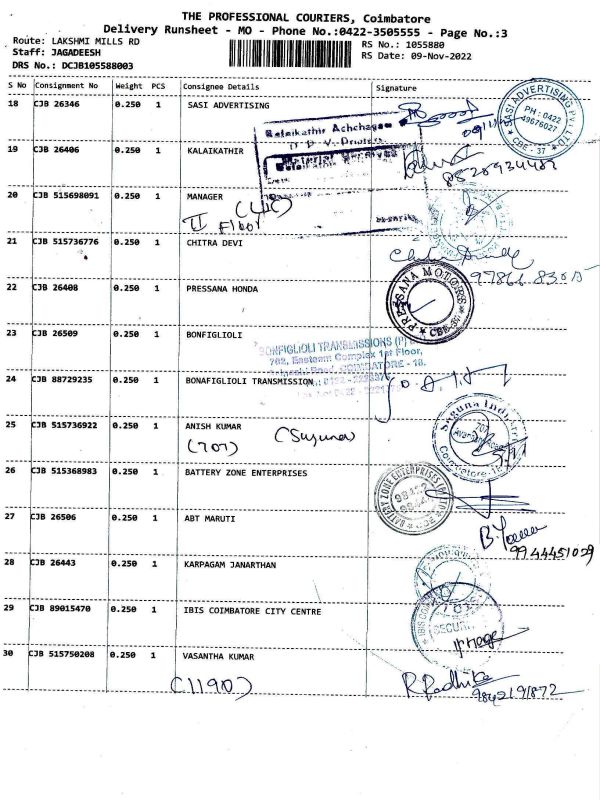 THE PROFESSIONAL COURIERS, Coimbatore
Delivery Runsheet - MO - Phone No.:0422-3505555 - Page No.:3
Route: LAKSHMI MILLS RD
RS No.: 1055880
Staff: JAGADEESH
RS Date: 09-Nov-2022
DRS No.: DCJB105588003
S No Consignment No Weight PCS Consignee Details Signature
18 CJB 26346 0.250 1 SASI ADVERTISING
SASI ADVERTISING PVT. LTD.
PH : 0422
49676027
CBE - 37
Kalaikathir Achchagam
19 CJB 26406 0.250 1 KALAIKATHIR
Material Received
20 CJB 515698091 0.250 1 MANAGER (LIC)
II Floor
21 CJB 515736776 0.250 1 CHITRA DEVI
22 CJB 26408 0.250 1 PRESSANA HONDA
PRESSANA MOTORS
CBE-37
23 CJB 26509 0.250 1 BONFIGLIOLI
BONFIGLIOLI TRANSMISSIONS (P)
702, Eastern Complex 1st Floor,
COIMBATORE - 18.
24 CJB 88729235 0.250 1 BONAFIGLIOLI TRANSMISSION
25 CJB 515736922 0.250 1 ANISH KUMAR
(707) (Suguna)
Suguna
707
Coimbatore
26 CJB 515368983 0.250 1 BATTERY ZONE ENTERPRISES
BATTERY ZONE ENTERPRISES
27 CJB 26506 0.250 1 ABT MARUTI
9944451029
28 CJB 26443 0.250 1 KARPAGAM JANARTHAN
29 CJB 89015470 0.250 1 IBIS COIMBATORE CITY CENTRE
IBIS
SECURITY
30 CJB 515750208 0.250 1 VASANTHA KUMAR
(1190) R Radhika
9842191872